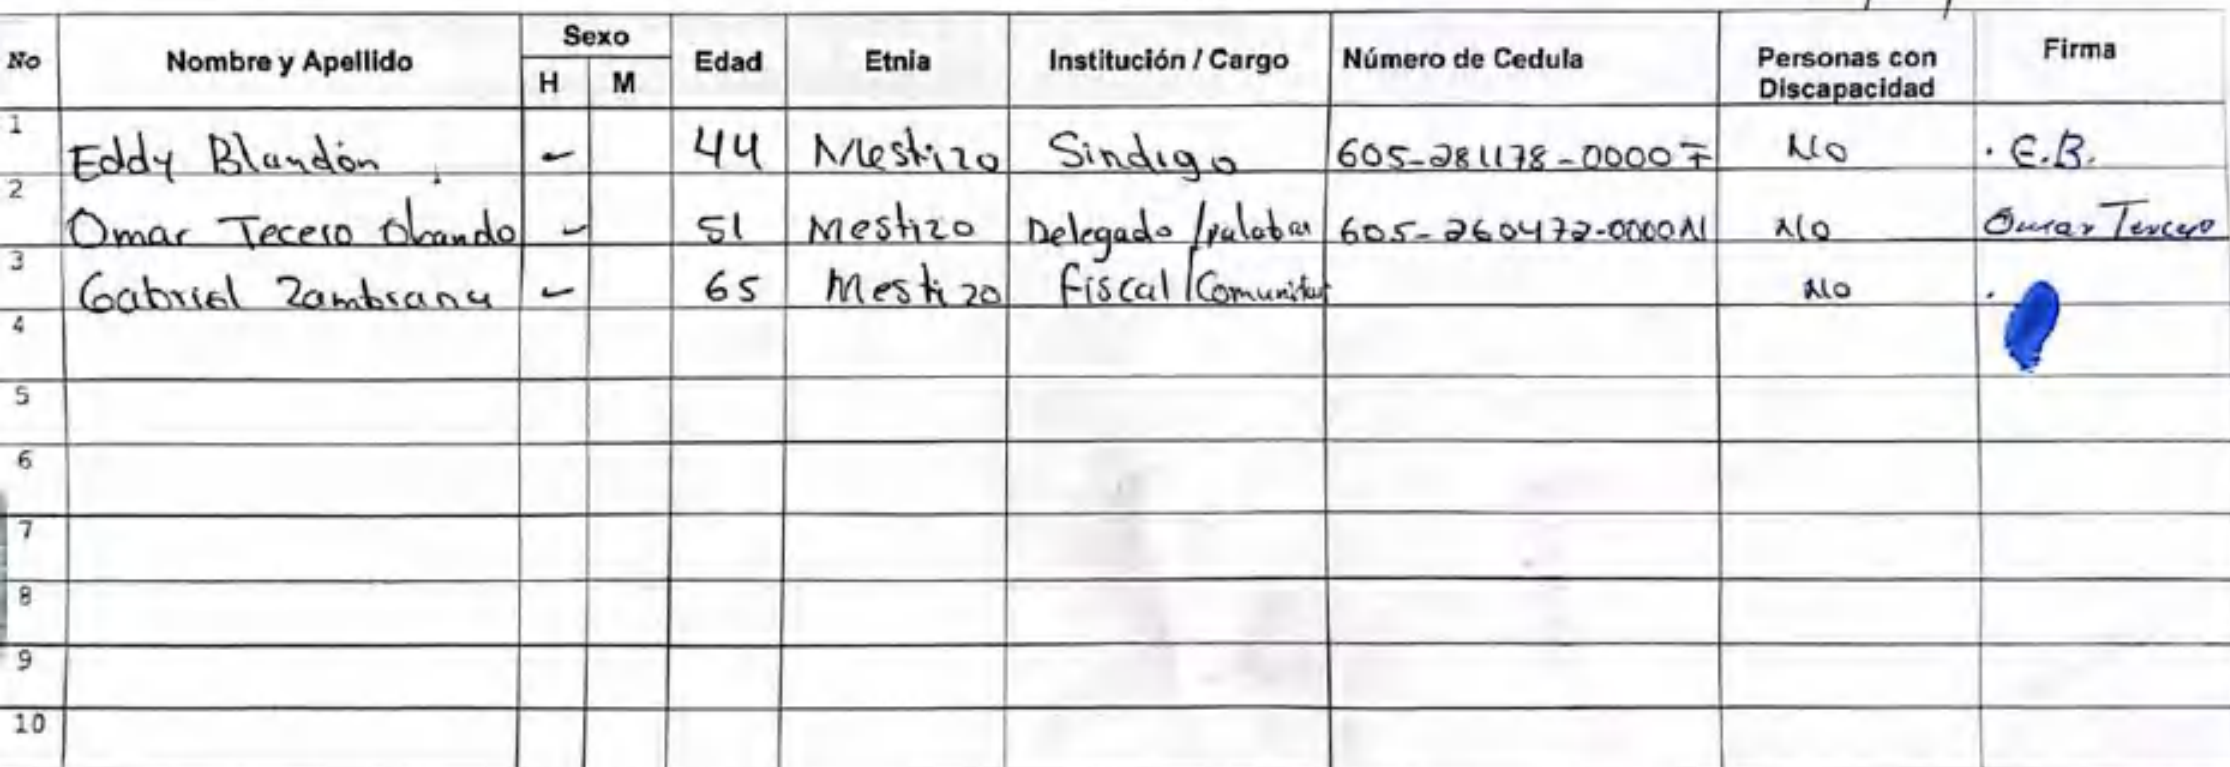 No Nombre y Apellido Sexo H M Edad Etnia Institución / Cargo Número de Cedula Personas con Discapacidad Firma
1 Eddy Blandón 44 Mestizo Sindigo 605-281178-0000F No E.B.
2 Omar Tecero Obando 51 Mestizo Delegado /palabra 605-260472-0000N No Omar Tercero
3 Gabriel Zambrana 65 Mestizo fiscal /Comunitar No
4
5
6
7
8
9
10